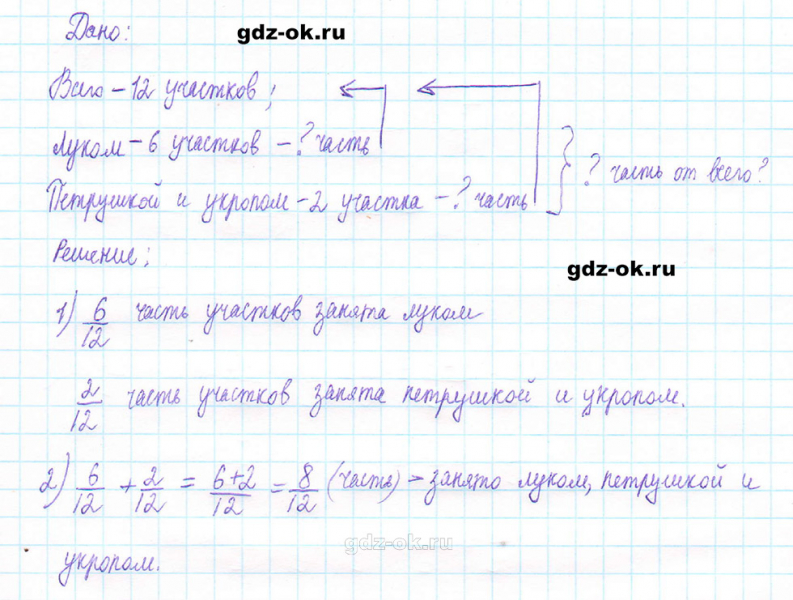 Дано: gdz-ok.ru
Всего – 12 участков;
Луком – 6 участков – ? часть
Петрушкой и укропом – 2 участка – ? часть } ? часть от всего?
Решение;
gdz-ok.ru
1) 6/12 часть участков занята луком
2/12 часть участков занята петрушкой и укропом.
2) 6/12 + 2/12 = 6+2/12 = 8/12 (часть) – занято луком, петрушкой и
gdz-ok.ru
укропом.